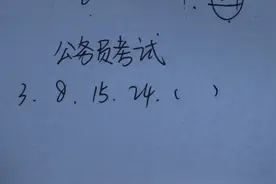 公务员考试
3.8.15.24.( )